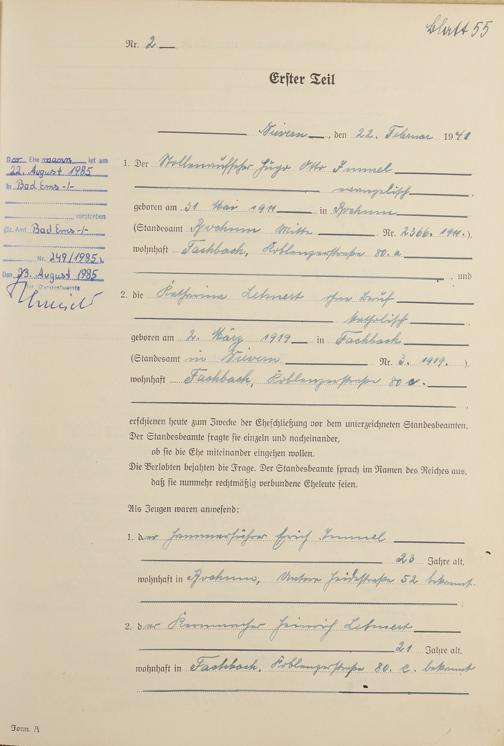 Blatt 55
Nr. 2
Erster Teil
Nievern, den 22. Februar 1941
Der Ehemann ist am
22. August 1985
in Bad Ems -/-
verstorben
(St. Amt Bad Ems -/-
Nr. 249/1985).
Den 23. August 1985
Der Standesbeamte
1. Der Hugo Otto Immel
evangelisch
geboren am 31. Mai 1911 in Bochum
(Standesamt Bochum Mitte Nr. 2366. 1911.),
wohnhaft Fachbach, Koblenzerstraße 80. a
, und
2. die Katharina Lehnert ohne Beruf
katholisch
geboren am 2. März 1919 in Fachbach
(Standesamt in Nievern Nr. 3. 1919.),
wohnhaft Fachbach, Koblenzerstraße 80
erschienen heute zum Zwecke der Eheschließung vor dem unterzeichneten Standesbeamten.
Der Standesbeamte fragte sie einzeln und nacheinander,
ob sie die Ehe miteinander eingehen wollen.
Die Verlobten bejahten die Frage. Der Standesbeamte sprach im Namen des Reiches aus,
daß sie nunmehr rechtmäßig verbundene Eheleute seien.
Als Zeugen waren anwesend:
1. der Erich Immel
23 Jahre alt,
wohnhaft in Bochum, Untere Heidestraße 52 bekannt.
2. der Heinrich Lehnert
21 Jahre alt,
wohnhaft in Fachbach. Koblenzerstraße 80. c. bekannt
Form. A